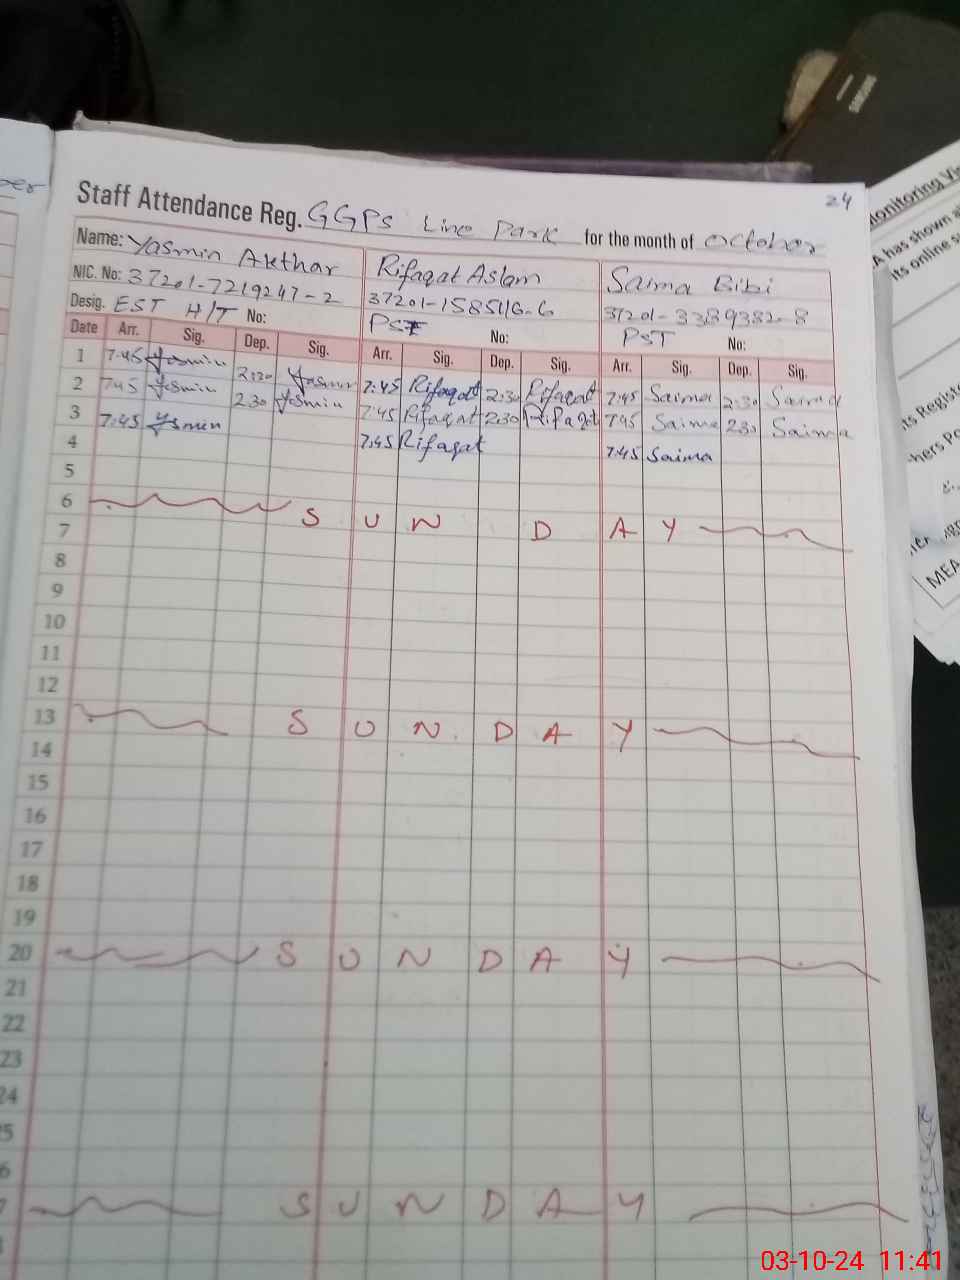 24
Staff Attendance Reg. GGPS Line Park for the month of October
Name: Yasmin Akthar Rifaqat Aslam Saima Bibi
NIC. No: 37201-7219247-2 37201-1585116-6 37201-3389382-8
Desig. EST H/T No: PST No: PST No:
Date Arr. Sig. Dep. Sig. Arr. Sig. Dep. Sig. Arr. Sig. Dep. Sig.
1 7:45 Yasmin 2:30 Yasmin 7:45 Rifaqat 2:30 Rifaqat 7:45 Saima 2:30 Saima
2 7:45 Yasmin 2:30 Yasmin 7:45 Rifaqat 2:30 Rifaqat 7:45 Saima 2:30 Saima
3 7:45 Ysmin 7:45 Rifaqat 7:45 Saima
4
5
6 S U N D A Y
7
8
9
10
11
12
13 S U N D A Y
14
15
16
17
18
19
20 S U N D A Y
21
22
23
24
5
6
7 S U N D A Y
SAMSUNG
onitoring
has shown
its online
Regist
hers
MEA
03-10-24 11:41